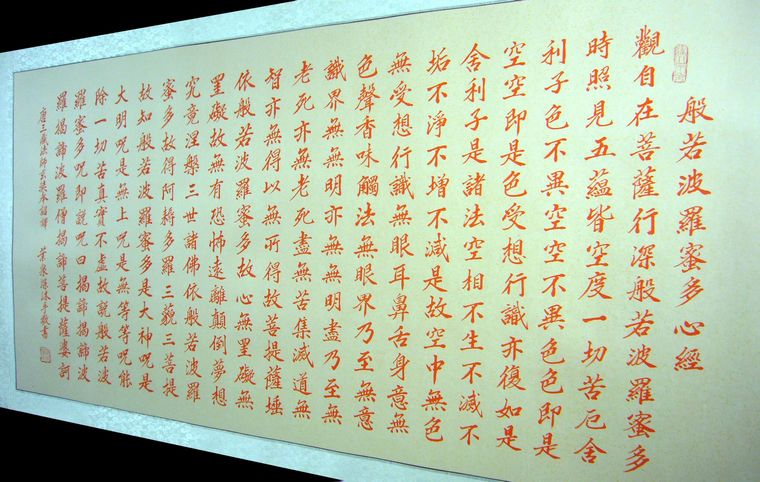 般若波羅蜜多心經
觀自在菩薩行深般若波羅蜜多
時照見五蘊皆空度一切苦厄舍
利子色不異空空不異色色即是
空空即是色受想行識亦復如是
舍利子是諸法空相不生不滅不
垢不淨不增不減是故空中無色
無受想行識無眼耳鼻舌身意無
色聲香味觸法無眼界乃至無意
識界無無明亦無無明盡乃至無
老死亦無老死盡無苦集滅道無
智亦無得以無所得故菩提薩埵
依般若波羅蜜多故心無罣礙無
罣礙故無有恐怖遠離顛倒夢想
究竟涅槃三世諸佛依般若波羅
蜜多故得阿耨多羅三藐三菩提
故知般若波羅蜜多是大神咒是
大明咒是無上咒是無等等咒能
除一切苦真實不虛故說般若波
羅蜜多咒即說咒曰揭諦揭諦波
羅揭諦波羅僧揭諦菩提薩婆訶
唐三藏法師玄奘奉詔譯 沐手敬書